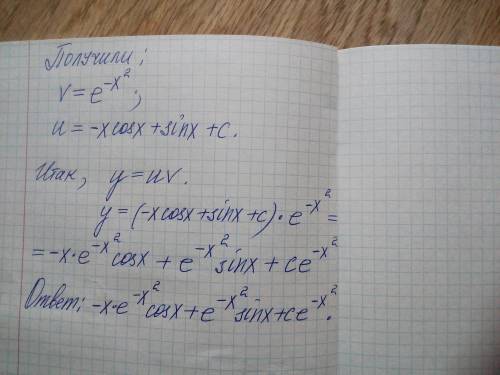 Получили:
v=e^{-x^2};
u=-xcosx+sinx+c.
Итак, y=uv.
y=(-xcosx+sinx+c)·e^{-x^2}=
=-x·e^{-x^2}cosx+e^{-x^2}sinx+ce^{-x^2}
Ответ: -x·e^{-x^2}cosx+e^{-x^2}sinx+ce^{-x^2}.